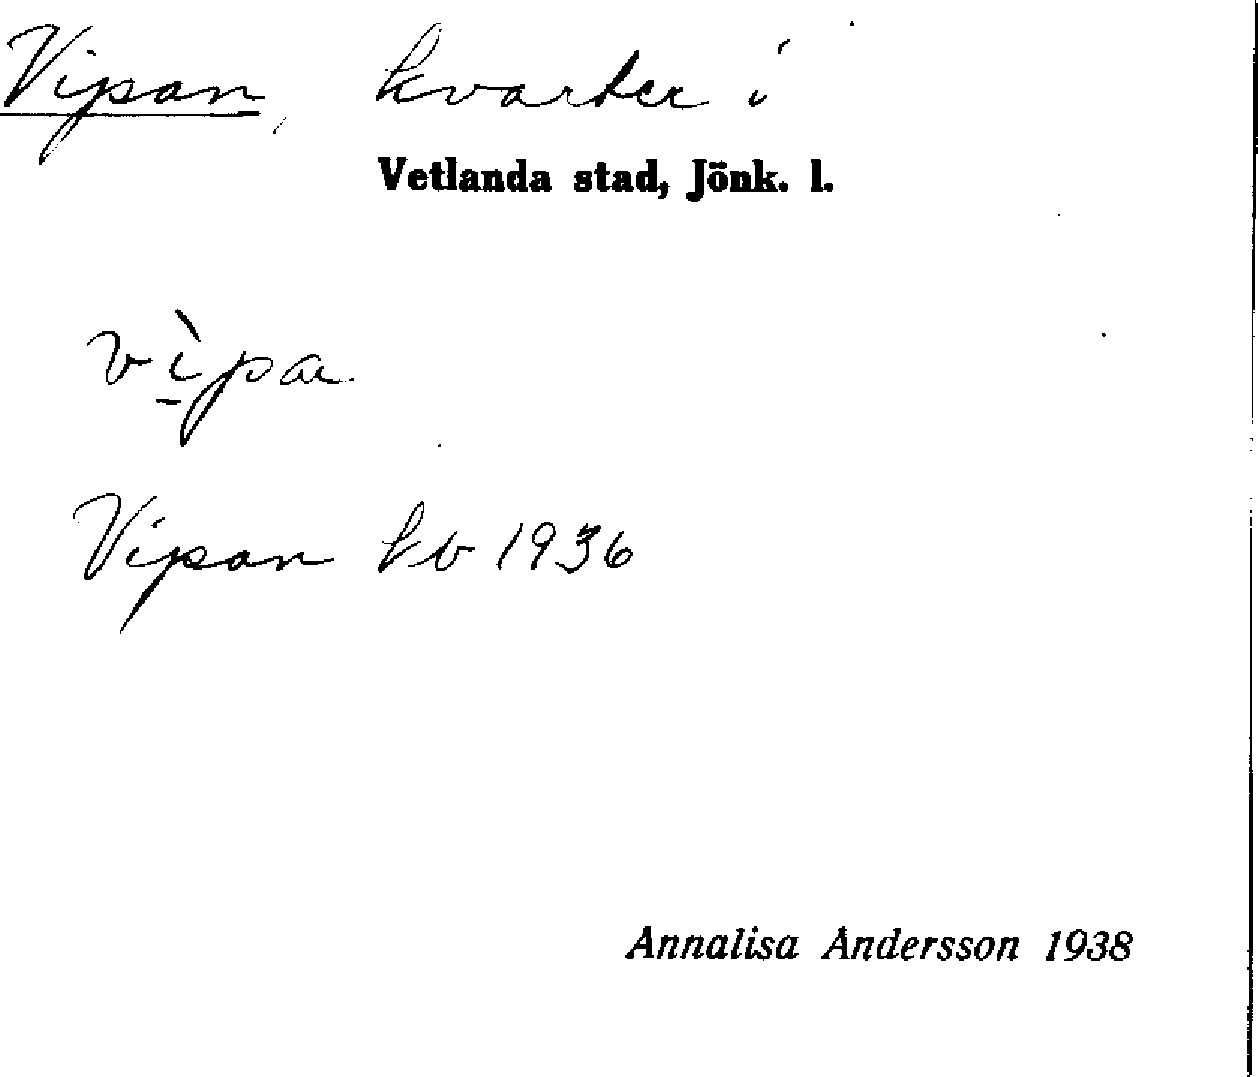 Vipan, kvarter i
Vetlanda stad, Jönk. l.
vı̲̀pa
Vipan kv 1936
Annalisa Andersson 1938